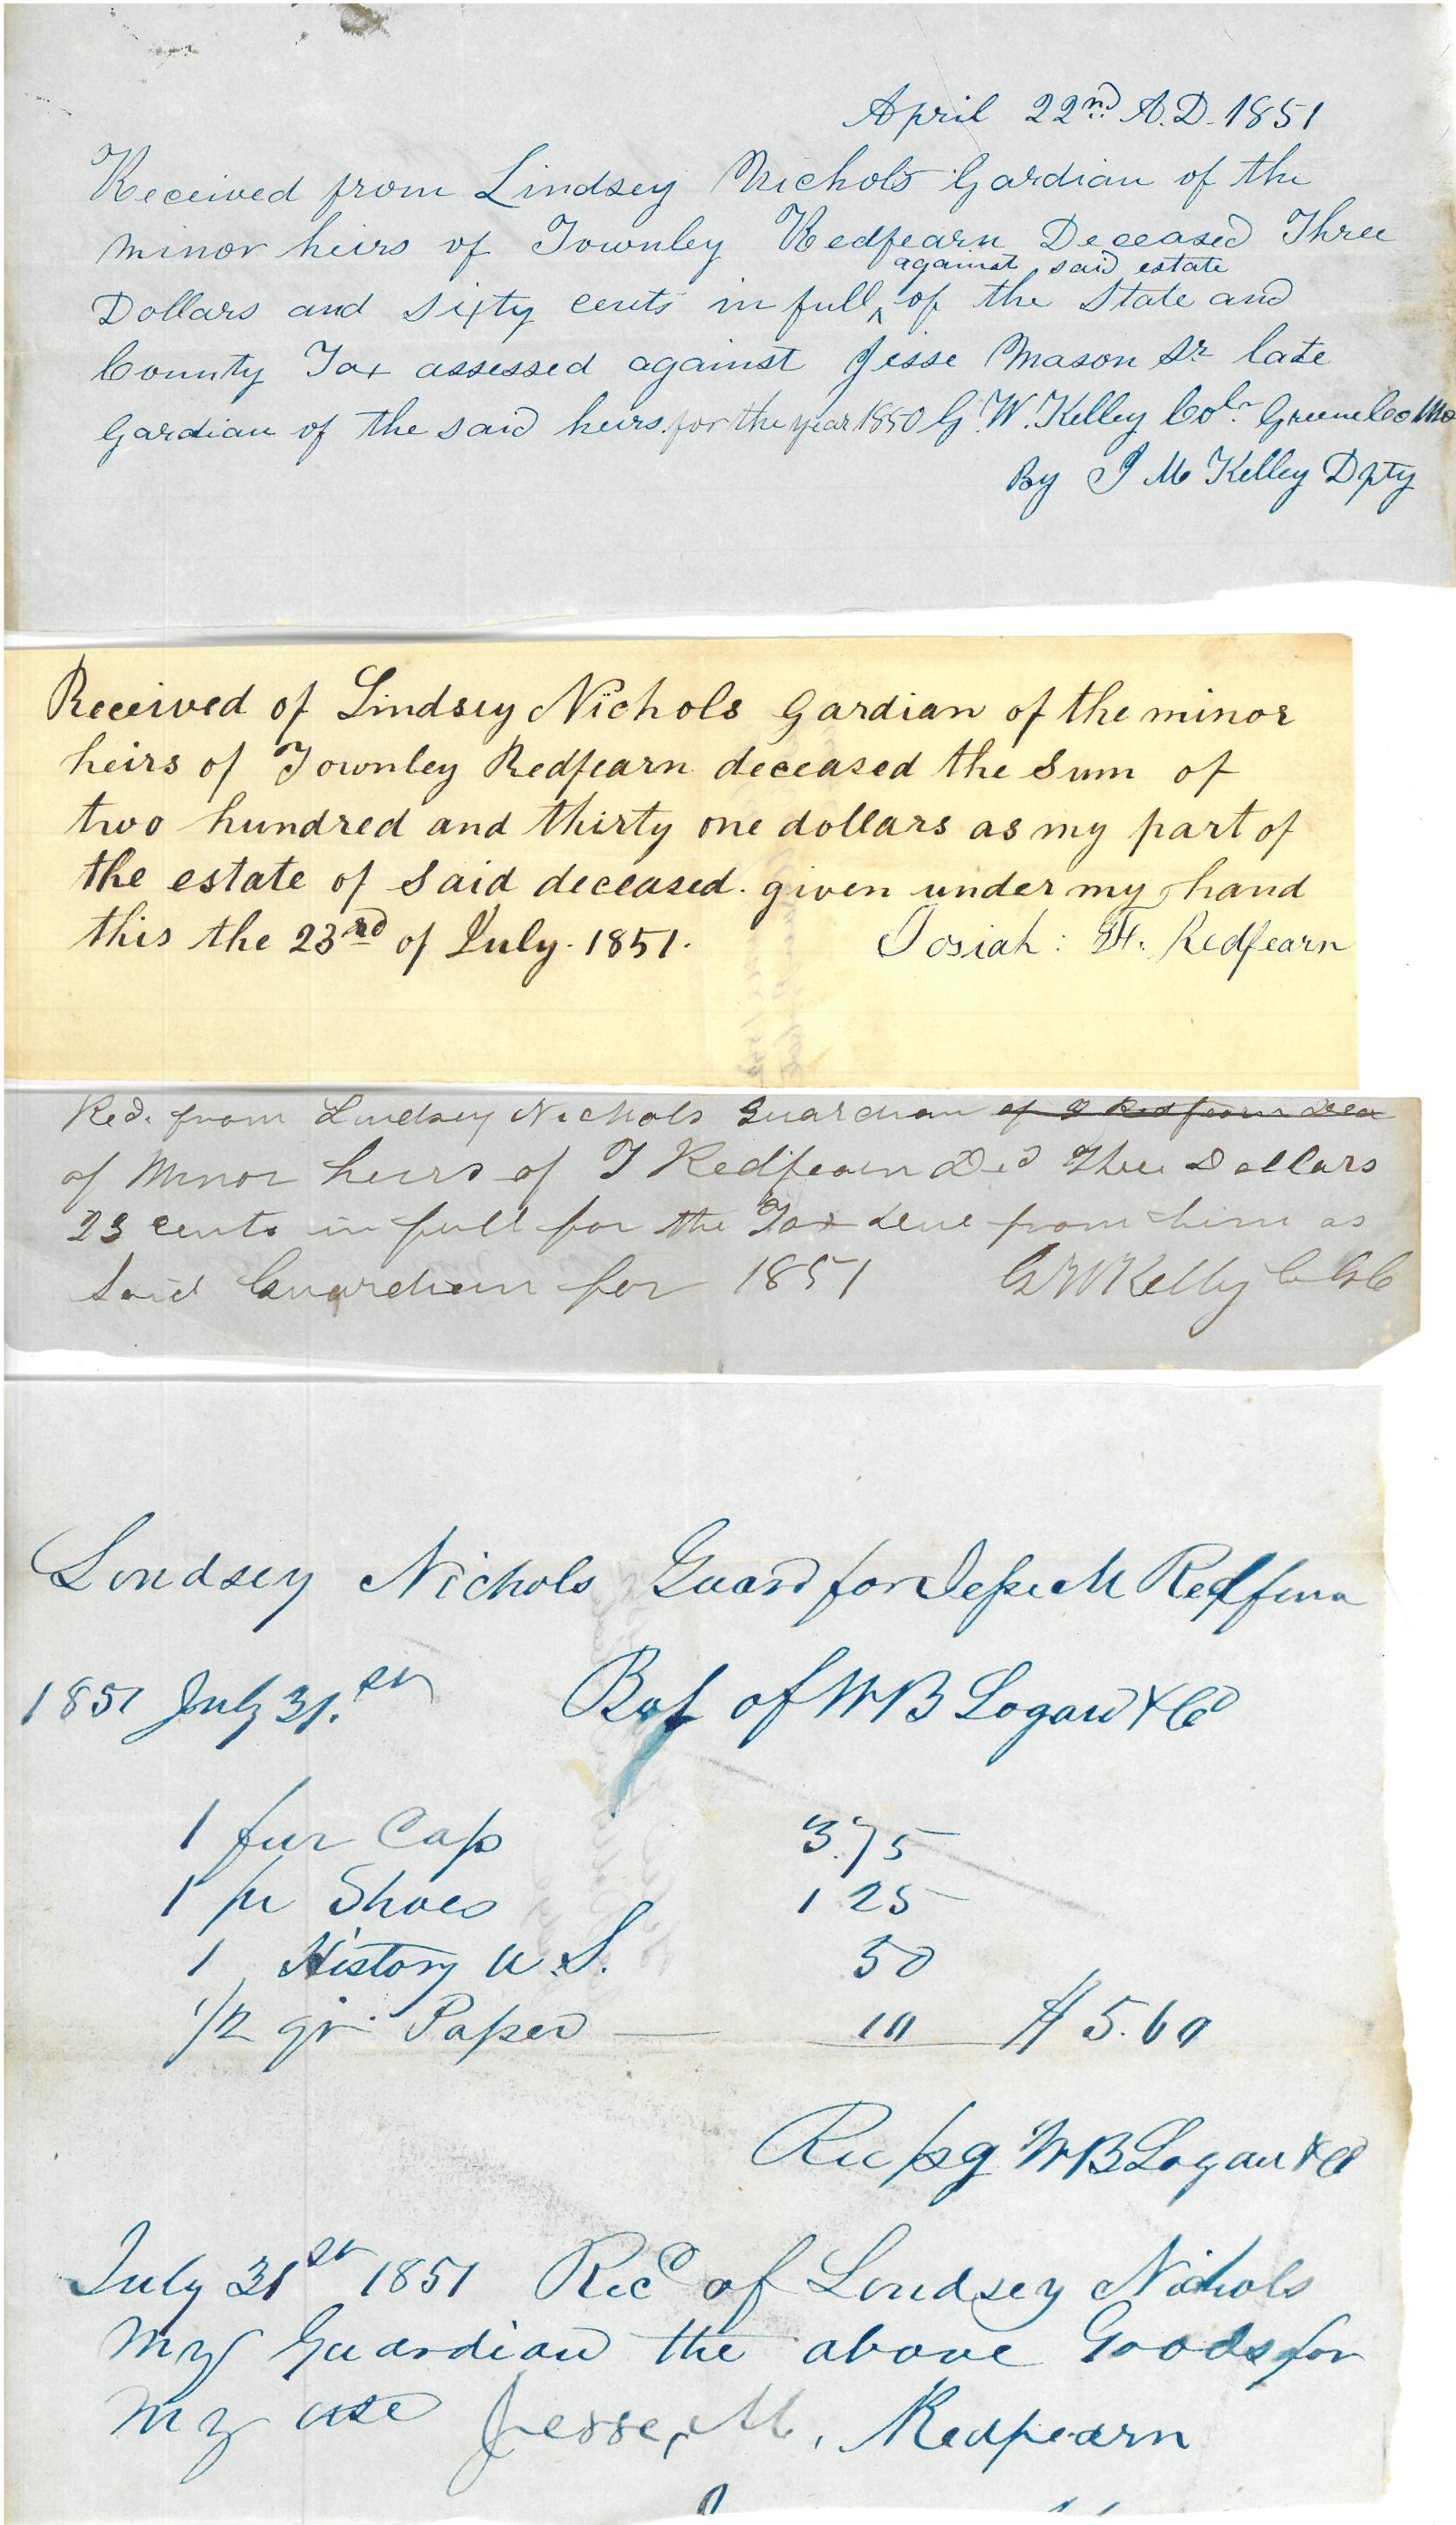 April 22nd A.D. 1851
Received from Lindsey Nichols Gardian of the
minor heirs of Townley Redfearn Deceased Three
against said estate
Dollars and sixty cents in full ^ of the State and
County Tax assessed against Jesse Mason Sr late
Gardian of the said heirs for the year 1850 G. W. Kelley Colr Greene Co Mo
By J M Kelley Dpty
Received of Lindsey Nichols Gardian of the minor
heirs of Townley Redfearn deceased the sum of
two hundred and thirty one dollars as my part of
the estate of said deceased. given under my hand
this the 23rd of July. 1851. Josiah: F. Redfearn
Red. from Lindsey Nichols Guardian of T Redfearn Dea
of Minor heirs of T Redfearn Ded Three Dollars
23 cents in full for the Tax due from him as
said Guardian for 1851 G W Kelly
Lindsey Nichols Guard for Jesse M Redfern
1851 July 31.st Bot of W B Logan & Co
1 fur Cap 3.75
1 pr Shoes 1 25
1 History U.S. 50
1/2 qr. Paper 10 $ 5.60
Rec pg W B Logan & Co
July 31st 1851 Recd of Lindsey Nichols
my Guardian the above Goods for
my use Jesse, M, Redfearn